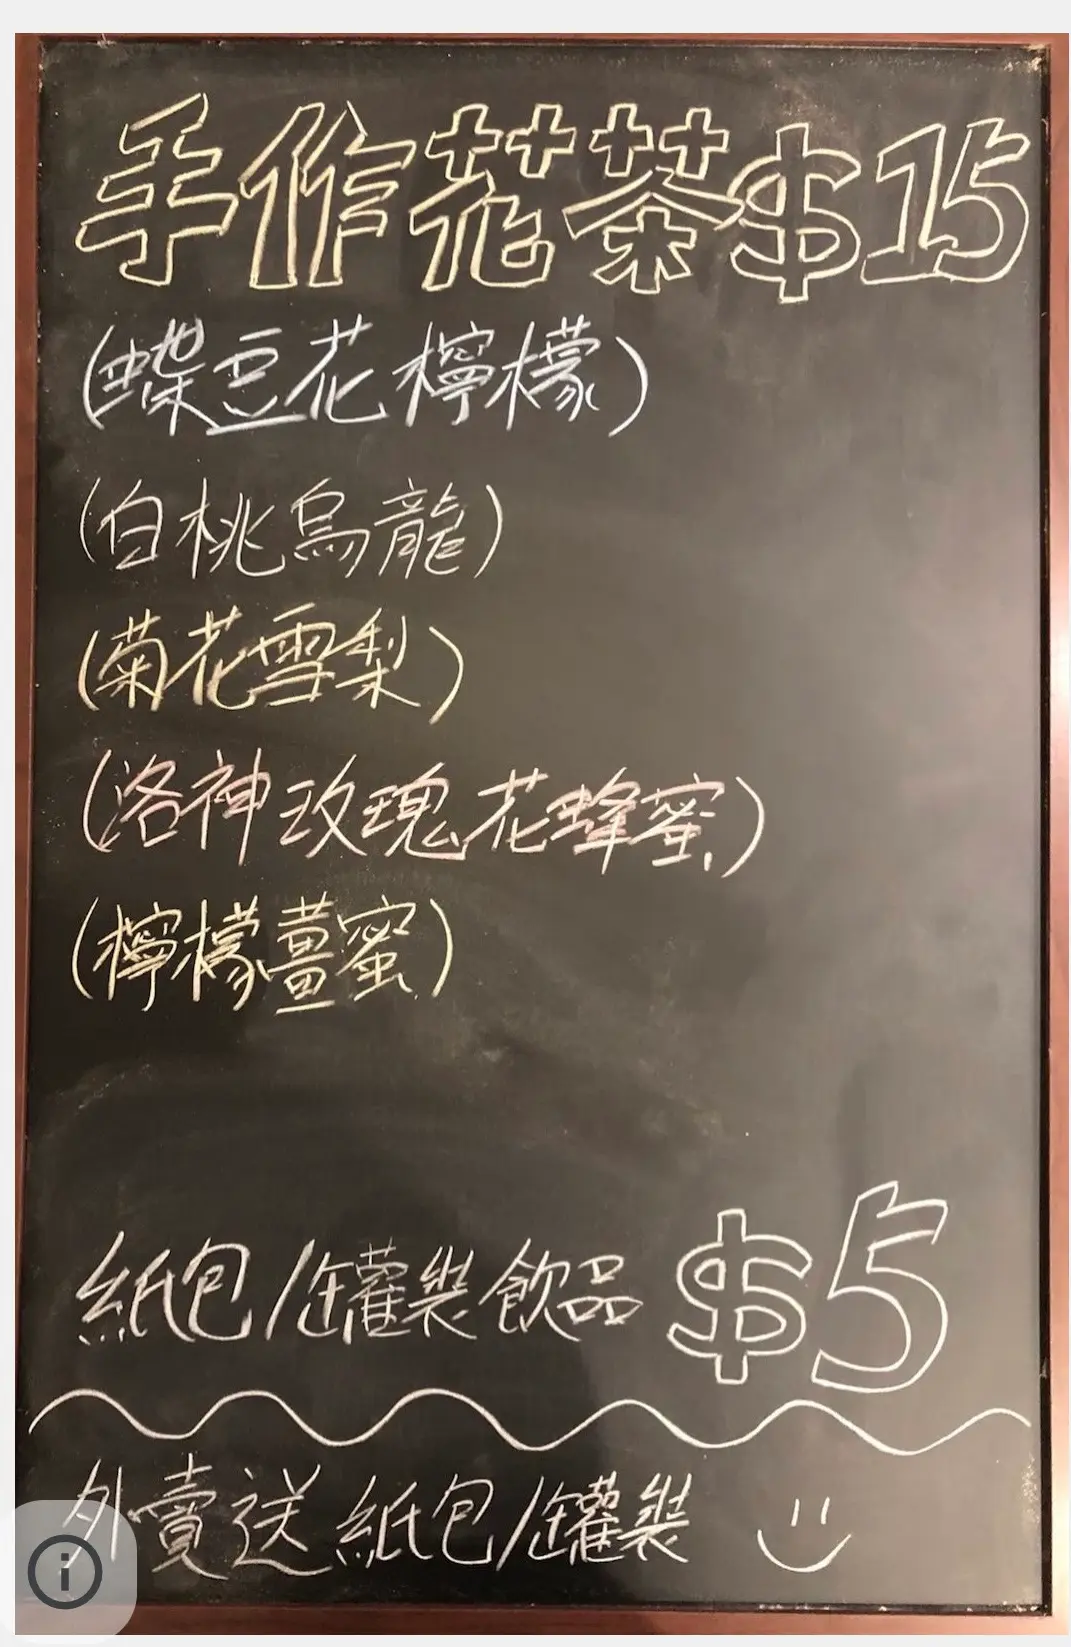 手作花茶$15
(蝶豆花檸檬)
(白桃烏龍)
(菊花雪梨)
(洛神玫瑰花蜂蜜)
(檸檬薑蜜)
紙包/罐裝飲品 $5
外賣送紙包/罐裝